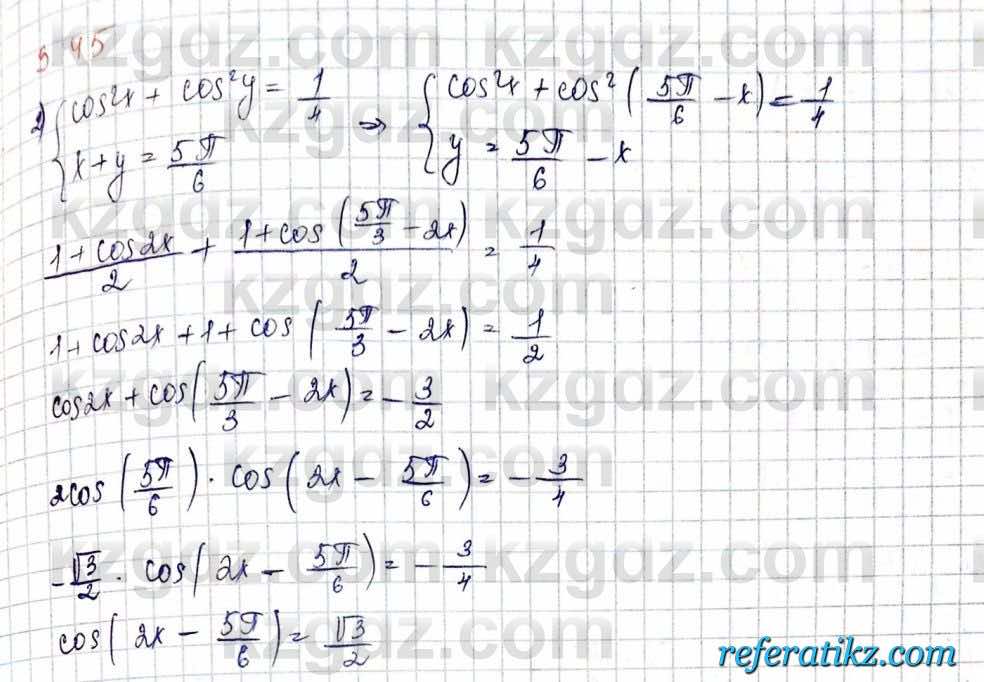 5 45
2) { cos²x + cos²y = 1/4 => { cos²x + cos² (5π/6 - x) = 1/4
x + y = 5π/6 y = 5π/6 - x
(1 + cos2x)/2 + (1 + cos (5π/3 - 2x))/2 = 1/4
1 + cos2x + 1 + cos (5π/3 - 2x) = 1/2
cos2x + cos (5π/3 - 2x) = - 3/2
2cos (5π/6) · cos (2x - 5π/6) = - 3/4
- √3/2 · cos (2x - 5π/6) = - 3/4
cos (2x - 5π/6) = √3/2
kzgdz.com
referatikz.com